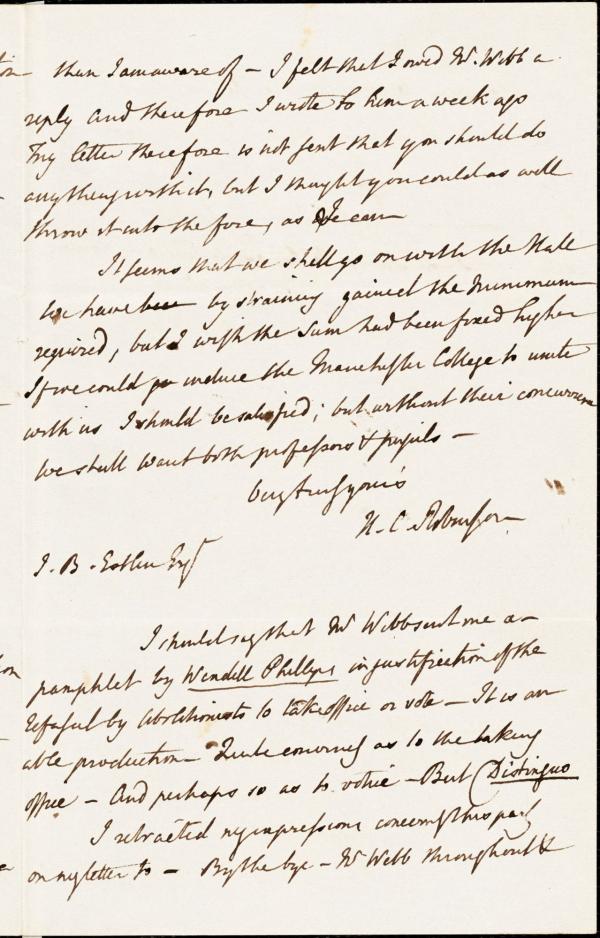 than I am aware of – I felt that I owed Mr. Webb a
reply and therefore I wrote to him a week ago
My letter therefore is not sent that you should do
anything with it, but I thought you could as well
throw it into the fire, as I can
It seems that we shall go on with the Hall
We have by straining gained the minimum
required, but I wish the Sum had been fixed higher
If we could induce the Manchester College to unite
with us I should be satisfied; but without their concurrence
we shall want both professors & pupils –
Very truly yours
H. C. Robinson
J. B. Estlin Esqr
I should say that Mr Webb sent me a
pamphlet by Wendell Phillips in justification of the
refusal by Abolitionists to take office or vote – It is an
able production – Quite convincing as to the taking
office – And perhaps so as to voting – But (Distinguo
I retracted my impressions concerning this party
on my letter to – By the bye – Mr Webb throughout &